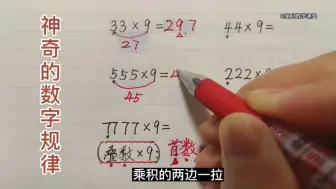 神奇的数字规律
33×9=297
27
44×9=
555×9=4
45
222×9
7777×9=
(乘数×9) 首数
乘积的两边一拉